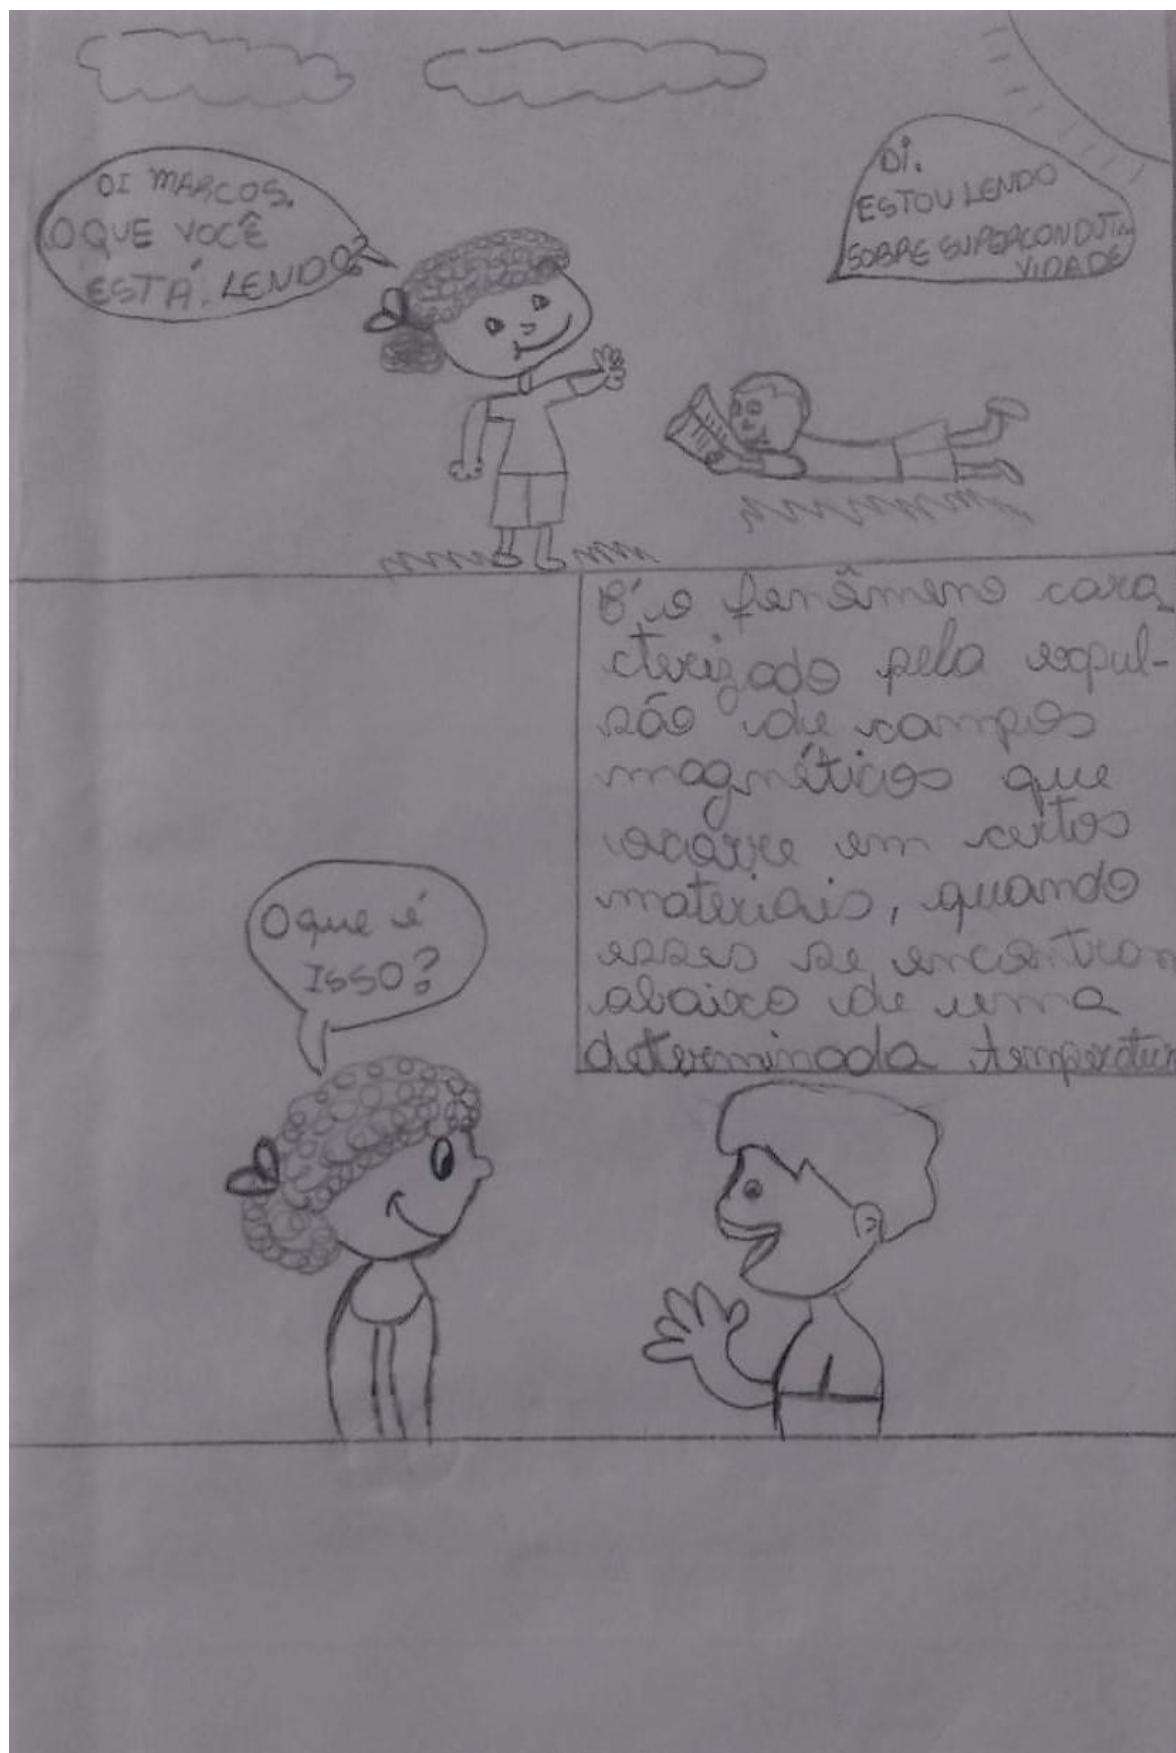 OI MARCOS.
O QUE VOCÊ
ESTÁ LENDO?
OI.
ESTOU LENDO
SOBRE SUPERCONDUTI
VIDADE
O que é
ISSO?
É o fenômeno cara
cterizado pela expul-
são de campos
magnéticos que
ocorre em certos
materiais, quando
esses se encontram
abaixo de uma
determinada temperatur